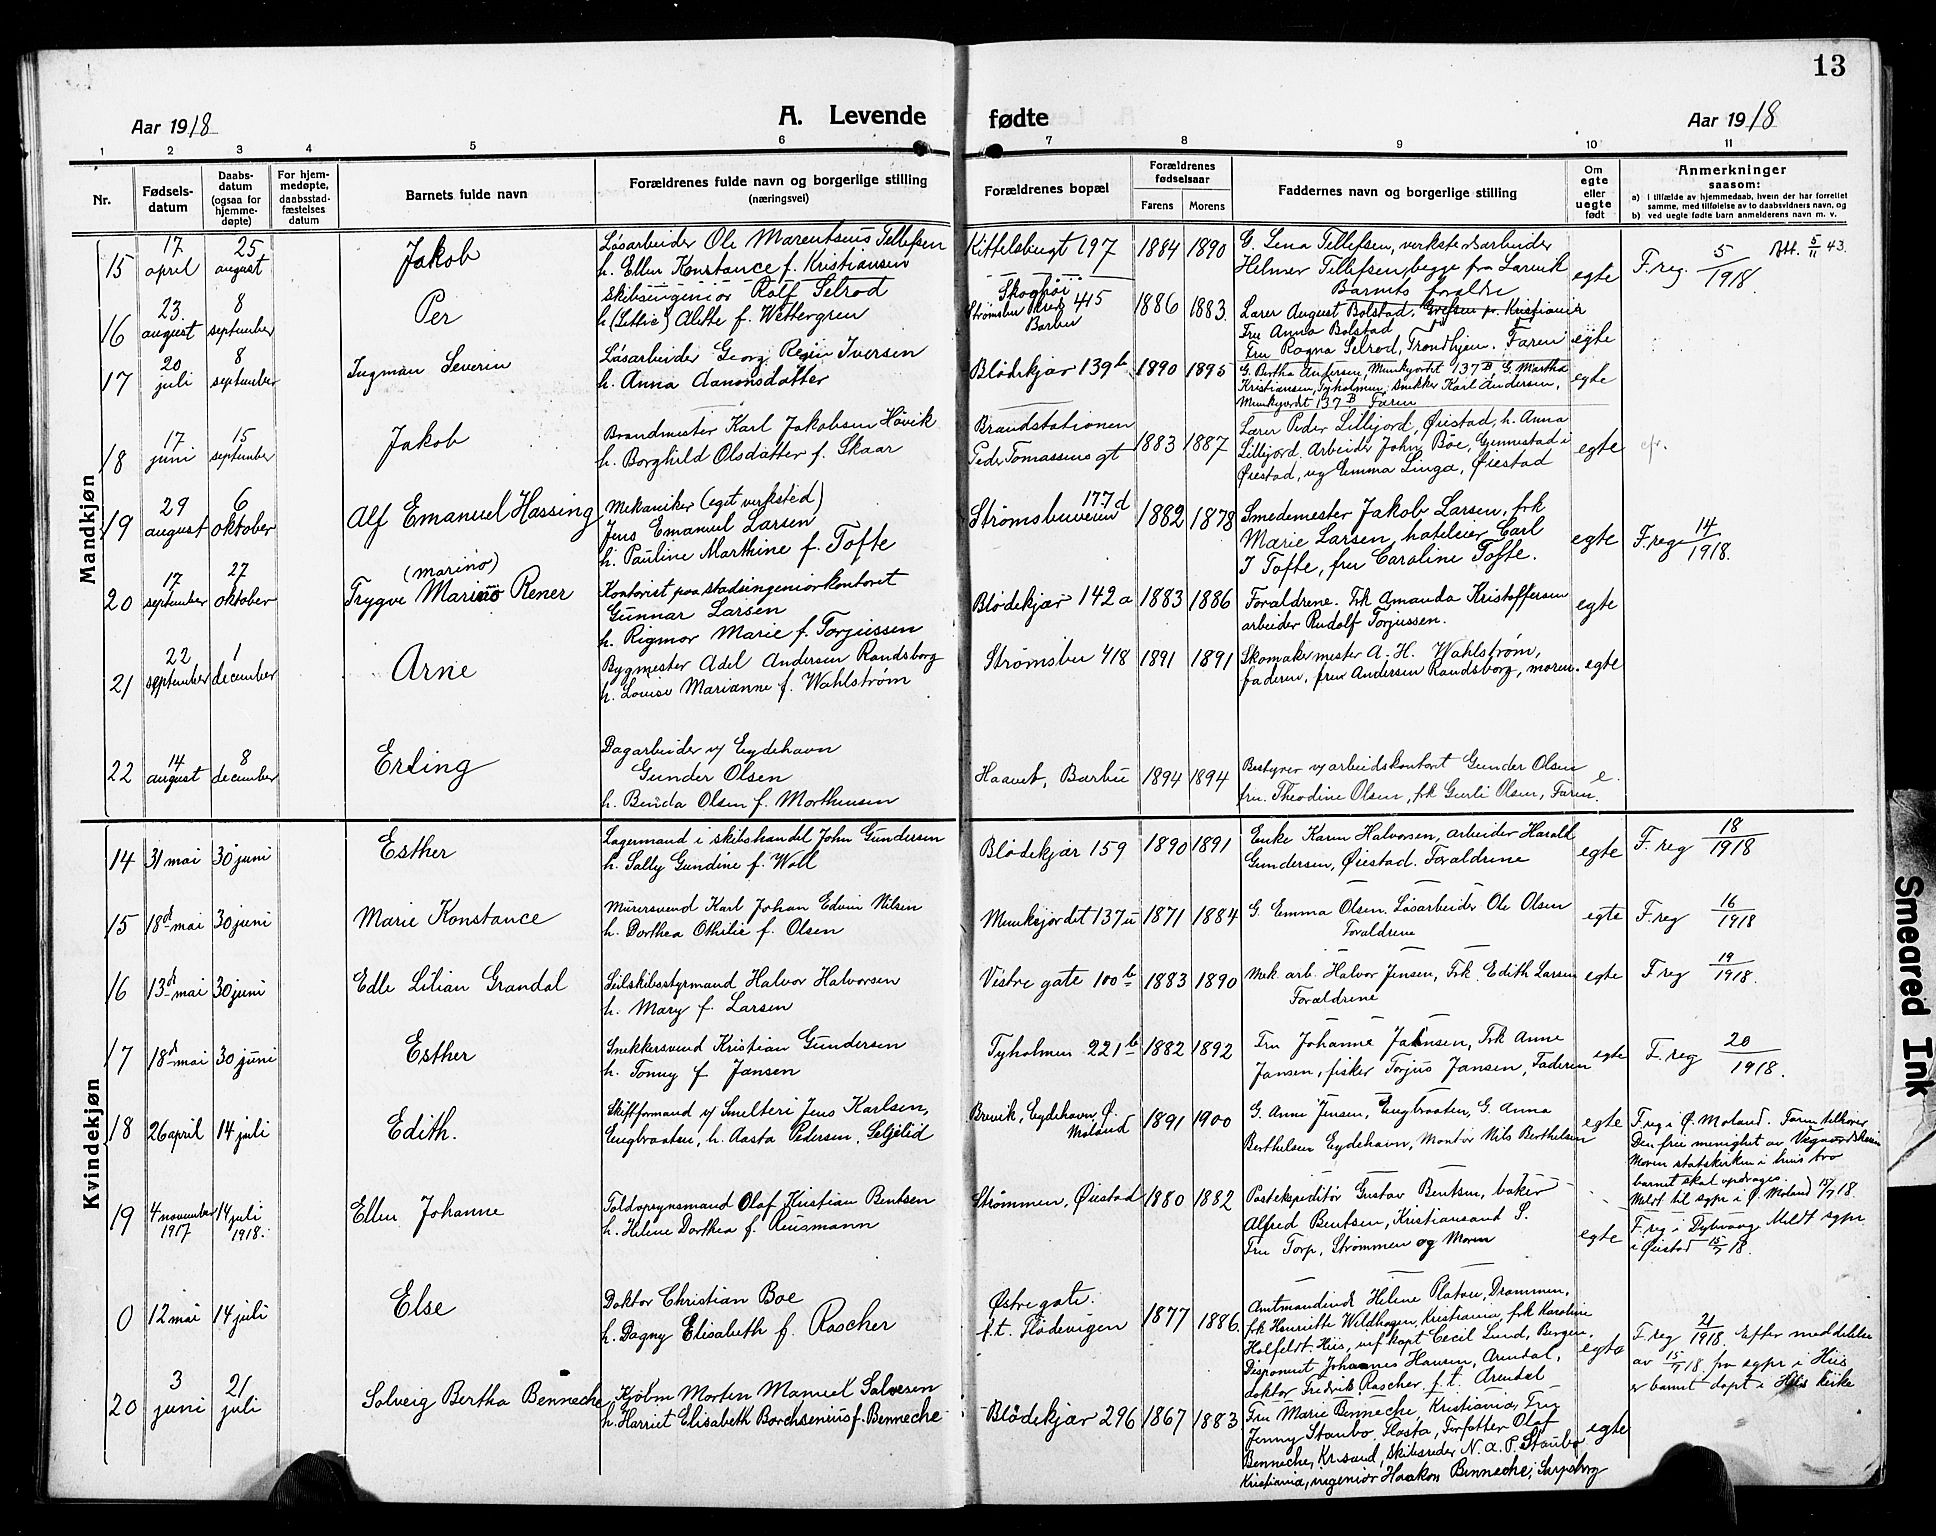 13
Aar 1918
A. Levende fødte
Aar 1918
1 2 3 4 5 6 7 8 9 10 11
Nr.
Fødsels-
datum
Daabs-
datum
(ogsaa for
hjemme-
døpte)
For hjem-
medøpte,
daabsstad-
fæstelses
datum
Barnets fulde navn
Forældrenes fulde navn og borgerlige stilling
(næringsvei)
Forældrenes bopæl
Forældrenes
fødselsaar
Farens
Morens
Faddernes navn og borgerlige stilling
Om
egte
eller
uegte
født
Anmerkninger
saasom:
a) i tilfælde av hjemmedaab, hvem der har forrettet
samme, med tilføielse av to daabsvidners navn, og
b) ved uegte fødte barn anmelderens navn m. v.
Mandkjøn
15
17 april
25 august
Jakob
Løsarbeider Ole Marentsius Tellefsen
h. Ellen Konstance f. Kristiansen
Kittelsbugt 197
1884 1890
G. Lena Tellefsen, verkstedsarbeider
Helmer Tellefsen, begge fra Larvik
Barnets forældre
egte
F. reg. 5/1918.
Att. 5/11 43.
16
23. august
8 september
Per
Skibsingeniør Rolf Selrod
h (Lettie) Alette f. Wettergren
Strømsbu 415
Barbu
1886 1883.
Lærer August Bolstad, Grefsen pr. Kristiania
Fru Anna Bolstad
Fru Ragna Selrod, Trondhjem. Faren
egte
17
20 juli
8 september
Ingman Severin
Løsarbeider Georg Iversen
h. Anna Aanonsdatter
Blødekjær 139b
1890 1895
G. Bertha Andersen, Munkjordet 137B, G. Martha
Kristiansen, Tyholmen, snekker Karl Andersen,
Munkjordet 137B Faren
egte
18
17 juni
15 september
Jakob
Brandmester Karl Jakobsen Høvik
h. Borghild Olsdatter f. Skaar
Brandstationen
Peder Tomassens gt
1883 1887
Lærer Peder Lillejord, Øiestad, h. Anna
Lillejord. Arbeider John Bøe, Gjennestad i
Øiestad, ug Emma Linga, Øiestad
egte
cfr.
19
29 august
6 oktober
Alf Emanuel Hassing
Mekaniker (eget verksted)
Jens Emanuel Larsen
h. Pauline Marthine f. Tofte
Strømsbuveien 177d
1882 1878
Smedemester Jakob Larsen, frk
Marie Larsen, hoteleier Carl
J Tofte, fru Caroline Tofte.
egte
F. reg 14/1918.
20
17 september
27 oktober
(marino)
Trygve Marino Rener
Kontorist paa stadsingeniørkontoret
Gunnar Larsen
h. Rigmor Marie f. Torjussen
Blødekjær 142a
1883 1886
Forældrene. Frk Amanda Kristoffersen
arbeider Rudolf Torjussen.
egte
21
22 september
1 december
Arne
Bygmester Adel Andersen Randsborg
h. Louise Marianne f. Wahlstrøm
Strømsbu 418
1891 1891
Skomakermester A. H. Wahlstrøm,
faderen, fru Andersen Randsborg, moren.
egte
22
14 august
8 december
Erling
Dagarbeider v/ Eydehavn
Gunder Olsen
h. Benda Olsen f. Morthensen
Haavet, Barbu
1894 1894
Bestyrer v/ arbeidskontoret Gunder Olsen
fru. Theodine Olsen, frk Gurli Olsen, Faren.
e.
Kvindekjøn
14
31 mai
30 juni
Esther
Lagermand i skibshandel John Gundersen
h. Sally Gundine f. Woll
Blødekjær 159
1890 1891
Enke Karen Halvorsen, arbeider Harald
Gundersen, Øiestad. Forældrene
egte
F. reg 18/1918
15
18d mai
30 juni
Marie Konstance
Murersvend Karl Johan Edvin Nilsen
h. Dorthea Othilie f. Olsen
Munksjordet 137
1871 1884
G. Emma Olsen. Løsarbeider Ole Olsen
Forældrene
egte
F. reg 16/1918
16
13d mai
30 juni
Edle Lilian Grandal
Seilskibsstyrmand Halvor Halvorsen
h. Mary f. Larsen
Vestre gate 100b
1883 1890
Mek. arb. Halvor Jensen, Frk. Edith Larsen
Forældrene
egte
F. reg 19/1918.
17
18d mai
30 juni
Esther
Snekkersvend Kristian Gundersen
h. Tonny f Jansen
Tyholmen 221b
1882 1892
Fru Johanne Jansen, Frk Anne
Jansen, fisker Torjus Jansen, Faderen
egte
F. reg 20/1918.
18
26 april
14 juli
Edith.
Skiftformand v/ Smelteri Jens Karlsen,
Engbraaten, h. Aasta Pedersen, Seljelid
Brevik, Eydehavn, Ø.
Moland
1891 1900
G. Anne Jensen, Engbraaten, G. Anna
Berthelsen Eydehavn, Montør Nils Berthelsen
egte
F. reg i Ø. Moland. Faren tilhører
Den frie menighet av Vegaardsheien
Moren statskirken i hvis tro
barnet skal opdrages.
Meldt til sgpr i Ø. Moland 17/7 18.
19
4 november 1917
14 juli 1918.
Ellen Johanne
Toldopsynsmand Olaf Kristian Bentsen
h. Helene Dorthea f. Reusmann
Strømmen, Øiestad
1880 1882
Postekspeditør Gustav Bentsen, baker
Alfred Bentsen, Kristiansand S.
Fru Torp, Strømmen og Moren
egte
F. reg i Dybvaag. Meldt sgpr.
i Øiestad 15/7 18.
0
12 mai
14 juli
Else
Doktor Christian Boe
h. Dagny Elisabeth f. Rascher
Østre gate.
f.t. Flødevigen
1877 1886
Amtmandinde Helene Platou, Drammen,
frk Henriette Wildhagen, Kristiania, frk Karoline
Holfeldt. Hiis, kapt Cecil Lund, Bergen,
Disponent Johannes Hansen, Arendal,
doktor Fredrik Rascher f.t. Arendal
egte
F. reg 21/1918. Efter meddelelse
av 15/7 18. fra sgpr i Hiis
er barnet døpt i Hiis kirke
20
3 juni
21 juli
Solveig Bertha Bennecke
Kjøbm Morten Manuel Salvesen
h. Harriet Elisabeth Borchsenius f. Bennecke
Blødekjær 296
1867 1883
Fru Marie Bennecke, Kristiania, Fru
Jenny Staubo, Flosta, Forfatter Olaf
Bennecke, Kr.sand, skibsreder N. A. P. Staubo
Kristiania, ingeniør Haakon Bennecke, Sarpsborg
egte
Smeared Ink